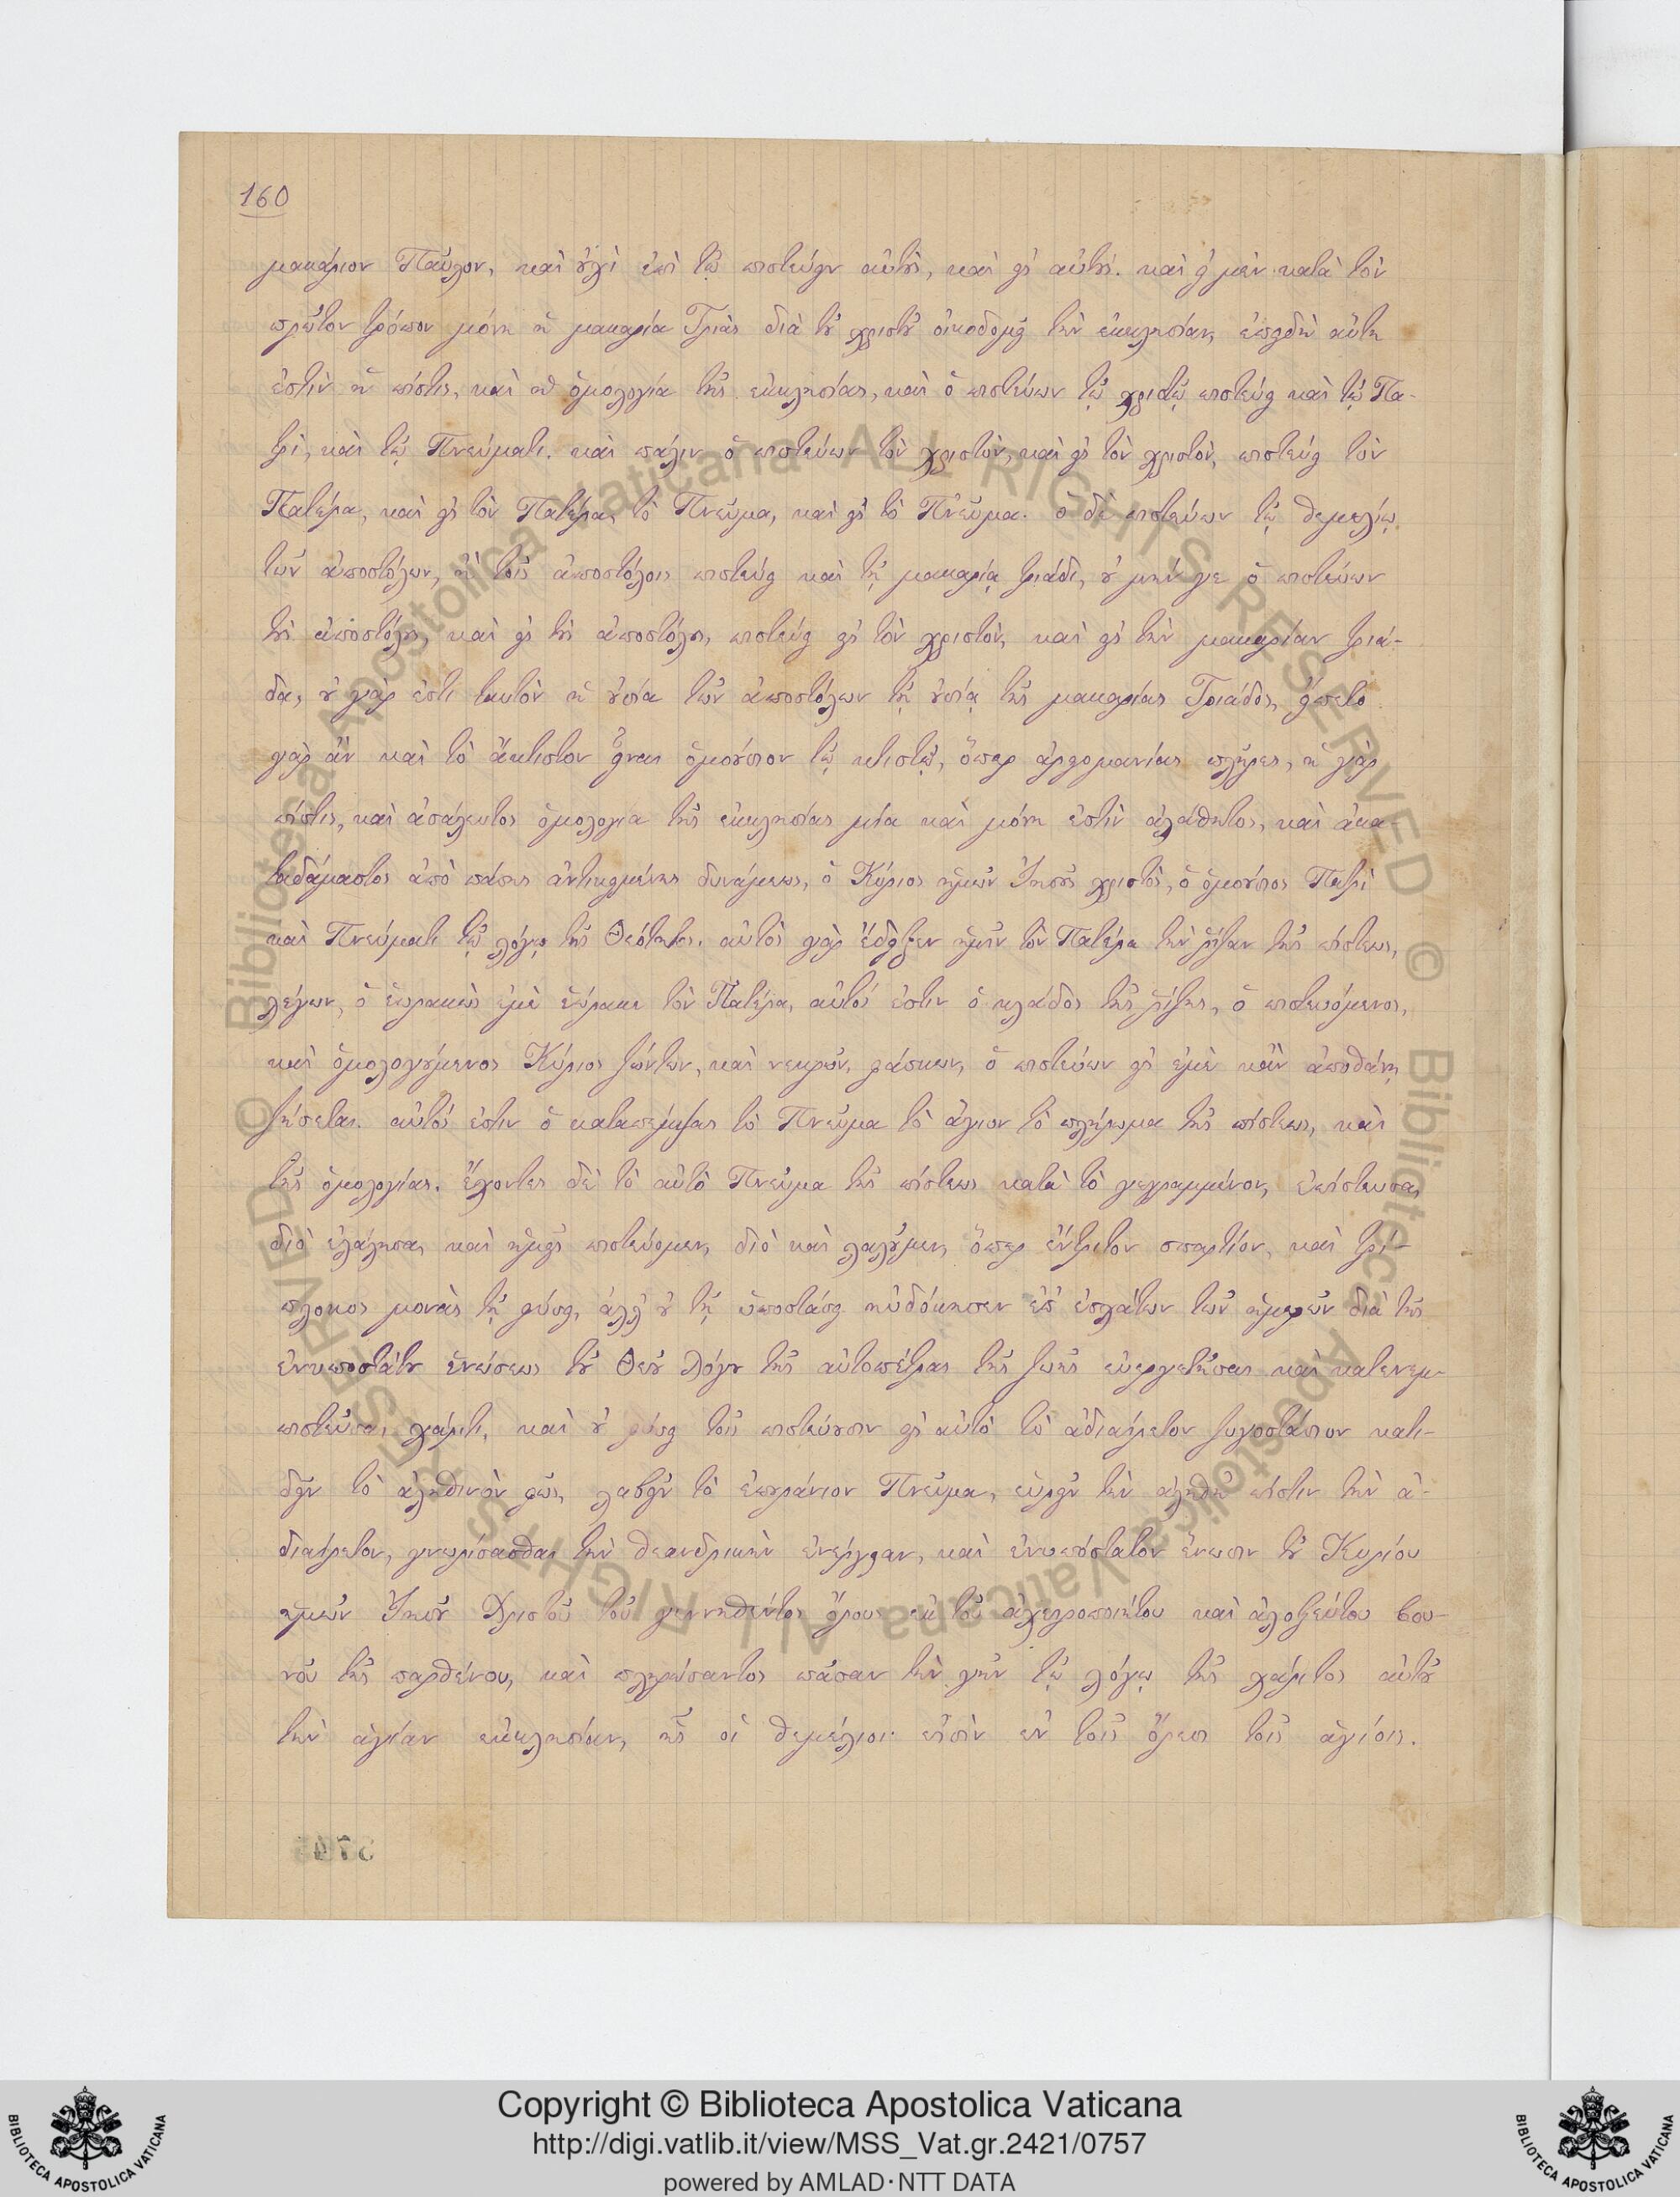 160
μακάριον Παῦλον, καὶ οὐχὶ ἐπὶ τῷ πιστεύειν αὐτοὺς, καὶ εἰς αὐτούς. καὶ εἰ μὲν κατὰ τὸν
πρῶτον τρόπον μόνη ἡ μακαρία Τριὰς διὰ τοῦ χριστοῦ οἰκοδομεῖ τὴν ἐκκλησίαν, ἐπειδὴ αὕτη
ἐστὶν ἡ πίστις, καὶ ἡ ὁμολογία τῆς ἐκκλησίας, καὶ ὁ πιστεύων τῷ χριστῷ πιστεύει καὶ τῷ Πα-
τρὶ, καὶ τῷ Πνεύματι. καὶ πάλιν ὁ πιστεύων τὸν χριστὸν, καὶ εἰς τὸν χριστὸν, πιστεύει τὸν
Πατέρα, καὶ εἰς τὸν Πατέρα, τὸ Πνεῦμα, καὶ εἰς τὸ Πνεῦμα. ὁ δὲ πιστεύων τῷ θεμελίῳ
τῶν ἀποστόλων, ἢ τοῖς ἀποστόλοις πιστεύει καὶ τῇ μακαρίᾳ τριάδι, οὐ μήν γε ὁ πιστεύων
τοὺς ἀποστόλους, καὶ εἰς τοὺς ἀποστόλους, πιστεύει εἰς τὸν χριστὸν, καὶ εἰς τὴν μακαρίαν τριά-
δα, οὐ γάρ ἐστι ταυτὸν ἡ οὐσία τῶν ἀποστόλων τῇ οὐσίᾳ τῆς μακαρίας Τριάδος, εἵπετο
γὰρ ἂν καὶ τὸ ἄκτιστον εἶναι ὁμοούσιον τῷ κτιστῷ, ὅπερ ἀρειομανίας πλῆρες, ἡ γὰρ
πίστις, καὶ ἀσάλευτος ὁμολογία τῆς ἐκκλησίας μία καὶ μόνη ἐστὶν ἀλάθητος, καὶ ἀκα-
ταδάμαστος ἀπὸ πάσης ἀντικειμένης δυνάμεως, ὁ Κύριος ἡμῶν Ἰησοῦς χριστὸς, ὁ ὁμοούσιος Πατρὶ
καὶ Πνεύματι τῷ λόγῳ τῆς Θεότητος. αὐτὸς γὰρ ἔδειξεν ἡμῖν τὸν Πατέρα τὴν ῥίζαν τῆς πίστεως,
λέγων, ὁ ἑωρακὼς ἐμὲ ἑώρακε τὸν Πατέρα, αὐτός ἐστιν ὁ κλάδος τῆς ῥίζης, ὁ πιστευόμενος,
καὶ ὁμολογούμενος Κύριος ζώντων, καὶ νεκρῶν, φάσκων, ὁ πιστεύων εἰς ἐμὲ κἂν ἀποθάνῃ
ζήσεται. αὐτός ἐστιν ὁ καταπέμψας τὸ Πνεῦμα τὸ ἅγιον τὸ πλήρωμα τῆς πίστεως, καὶ
τῆς ὁμολογίας. ἔχοντες δὲ τὸ αὐτὸ Πνεῦμα τῆς πίστεως κατὰ τὸ γεγραμμένον, ἐπίστευσα,
διὸ ἐλάλησα, καὶ ἡμεῖς πιστεύομεν, διὸ καὶ λαλοῦμεν, ὅπερ ἔντριτον σπαρτίον, καὶ τρί-
πλοκος μονὰς τῇ φύσει, ἀλλ' οὐ τῇ ὑποστάσει ηὐδόκησεν ἐπ' ἐσχάτων τῶν ἡμερῶν διὰ τῆς
ἐνυποστάτου ἑνώσεως τοῦ Θεοῦ λόγου τῆς αὐτοπέτρας τῆς ζωῆς εὐεργετῆσαι καὶ κατενεμ-
πιστεῦσαι χάριτι, καὶ οὐ φύσει τοῖς πιστεύουσιν εἰς αὐτὸ τὸ ἀδιαίρετον ζυγοστάσιον κατι-
δεῖν τὸ ἀληθινὸν φῶς, λαβεῖν τὸ ἐπουράνιον Πνεῦμα, εὑρεῖν τὴν ἀληθῆ πίστιν τὴν ἀ-
διαίρετον, γνωρίσασθαι τὴν θεανδρικὴν ἐνέργειαν, καὶ ἐνυπόστατον ἕνωσιν τοῦ Κυρίου
ἡμῶν Ἰησοῦ Χριστοῦ τοῦ γεννηθέντος ὄρους ἐκ τοῦ ἀχειροποιήτου καὶ ἀλοξεύτου βου-
νοῦ τῆς παρθένου, καὶ πληρώσαντος πᾶσαν τὴν γῆν τῷ λόγῳ τῆς χάριτος αὐτοῦ
τὴν ἁγίαν ἐκκλησίαν, ἧς οἱ θεμέλιοι εἰσὶν ἐν τοῖς ὄρεσι τοῖς ἁγίοις.
© Biblioteca Apostolica Vaticana ALL RIGHTS RESERVED
© Biblioteca Apostolica Vaticana ALL RIGHTS RESERVED
Copyright © Biblioteca Apostolica Vaticana
http://digi.vatlib.it/view/MSS_Vat.gr.2421/0757
powered by AMLAD·NTT DATA
BIBLIOTECA APOSTOLICA VATICANA
BIBLIOTECA APOSTOLICA VATICANA